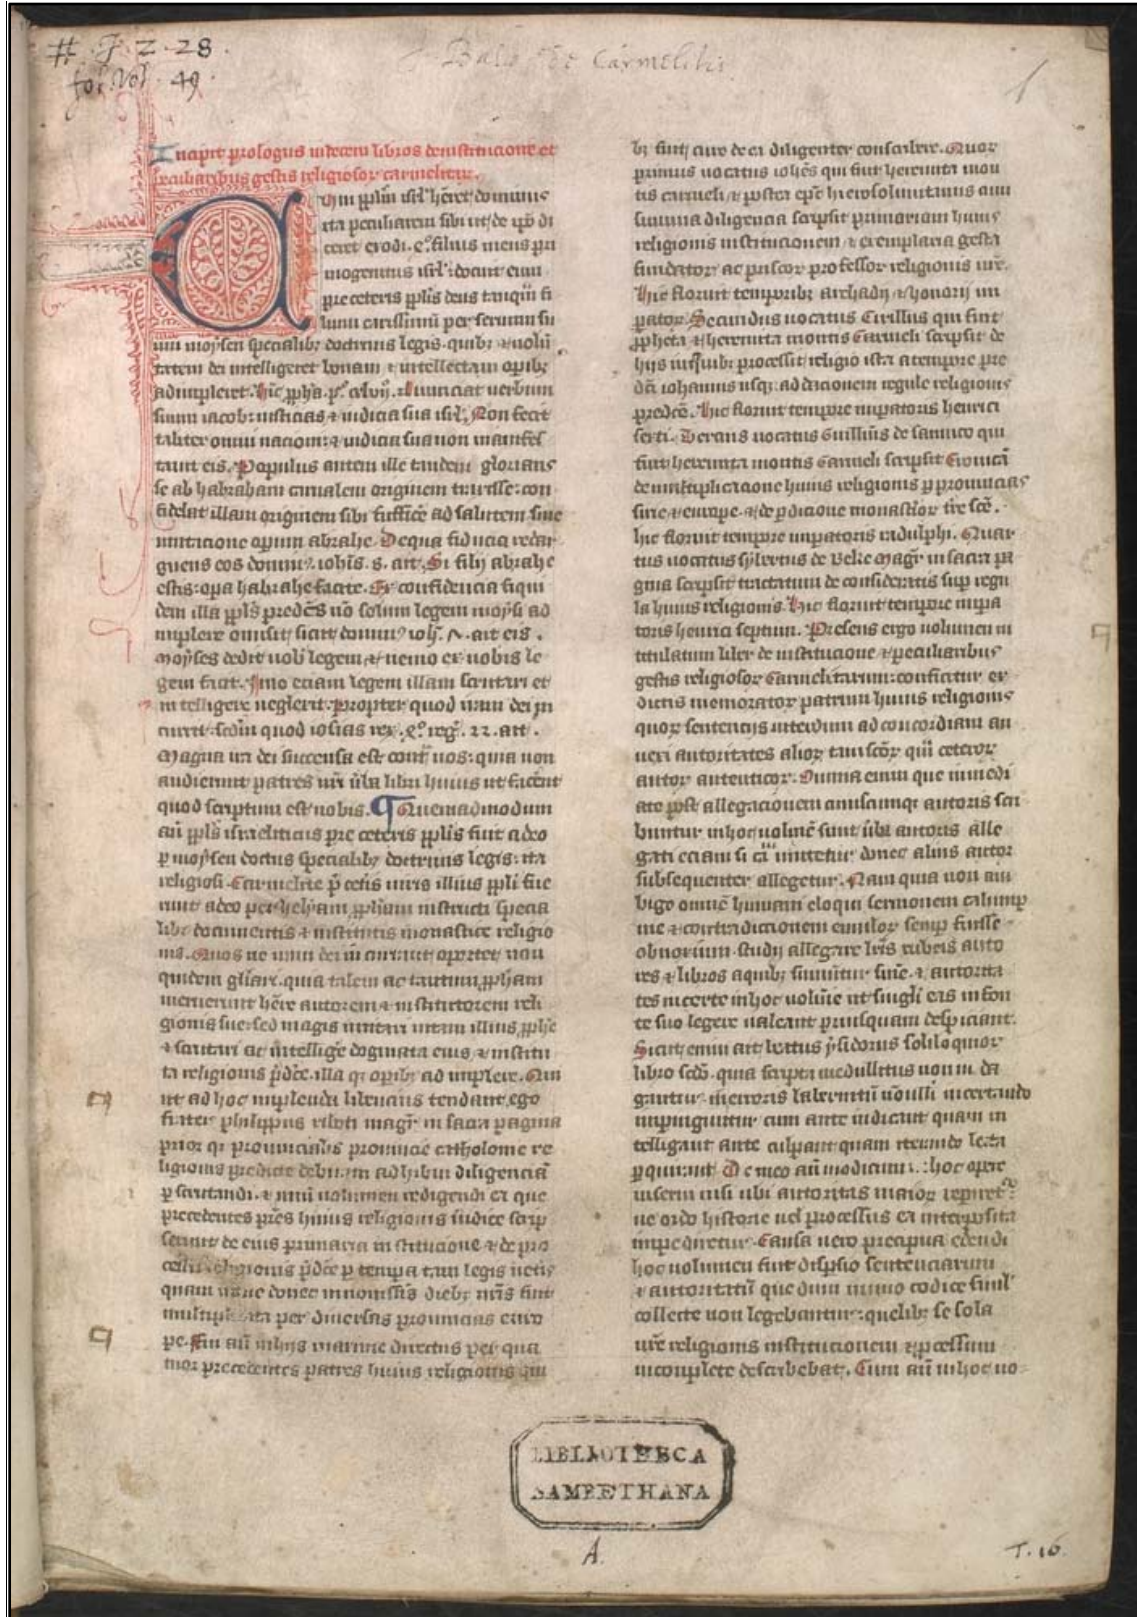 # . J . 2 . 28 .
fol. Vol. 49.
Bale de Carmelitis
1
Incipit prologus in decem libros de institucione et
peculiaribus gestis religiosor carmelitar.
ita peculiarem sibi ut de ipō di
ceret exodi. filius meus pri
mogenitus isrl': docuit eum
pre ceteris pplis deus tanqm fi
lium carissimū per seruum su
um moysen specialibz doctrinis legis. quibz & uolū
tatem dei intelligeret bonam & intellectam opibz
adimpleret. nunciat uerbum
suum iacob: iusticias & iudicia sua isrl'. Non fecit
taliter omni nacioni: & iudicia sua non manifes
tauit eis. Populus autem ille tandem glorians
se ab habraham carnalem originem traxisse: con
fidebat illam originem sibi sufficē ad salutem sine
imitacione operum abrahe. De qua fiducia redar
guens eos dominꝰ. iohīs. 8. ait. Si filij abrahe
estis: opa habrahe facite. Ex confidencia siqui
dem illa ppls predcūs nō solum legem moysi ad
implere omisit sicut dominꝰ ioh. ait eis.
Moyses dedit uobis legem & nemo ex uobis le
gem facit. Imo eciam legem illam scrutari et
intelligere neglexit. Propter quod iram dei in
currit. scdm quod iosias rex. reg. 22. ait.
Magna ira dei succensa est contra nos: quia non
audierunt patres nri uba libri huius ut facēnt
quod scriptum est nobis. ¶ Quemadmodum
aū ppls israeliticus pre ceteris pplis fuit adeo
p moysen doctus specialibz doctrinis legis: ita
religiosi Carmelite p cetis uiris illius ppli fue
runt adeo per helyam ppham instructi specia
libz documentis & institutis monastice religio
nis. Quos ne iram dei incurrant oportet non
quidem gliari. quia talem ac tantum ppham
meruerunt hēre autorem & institutorem reli
gionis sue: sed magis imitari uitam illius pphe
& scrutari ac intelligē dogmata eius & institu
ta religionis pdce. illa qz opibz adimplere. Qui
ut ad hoc implendū libencius tendant, ego
frater philippus riboti magr in sacra pagina
prior qz prouincialis prouincie catholonie re
ligionis predicte debitam adhibui diligenciā
pscrutandi. & in unū uolumen redigendi ea que
precedentes pres huius religionis sudice scrip
serunt de eius primaria institucione & de pro
cessu religionis pdce p tempora tam legis ueteris
quam noue donec in nouissis diebz nris fuit
multiplicata per diuersas prouincias euro
pe. Fui aū in hijs maxime directus per qua
tuor precedentes patres huius religionis qui
bz fuit cure de ea diligenter conscribere. Quor
primus uocatus iohēs qui fuit heremita mon
tis carmeli & postea eps hierosolimitanus cum
summa diligencia scripsit primariam huius
religionis institucionem & exemplaria gesta
fundator ac priscor professor religionis nre.
Hic floruit temporibz archadij & honorij im
pator. Secundus uocatus Cirillus qui fuit
ppheta & heremita montis Carmeli scripsit de
hijs in quibz processit religio ista a tempore pre
dci iohannis usqz ad dacionem regule religionis
predcē. Hic floruit tempore imperatoris henrici
sexti. Tercius uocatus Guillms de sanuico qui
fuit heremita montis Carmeli scripsit Cronicā
de multiplicacione huius religionis p prouincias
sirie & europe. & de pdicione monastior tre scē.
hic floruit tempore impatoris radulphi. Quar
tus uocatus sybertus de Beka Magr in sacra pa
gina scripsit tractatum de consideratis sup regu
la huius religionis. Hic floruit tempore impa
toris henrici septimi. Presens ergo uolumen in
titulatum liber de institucione & peculiaribus
gestis religiosor Carmelitarum: conficitur ex
dictis memorator patrum huius religionis
quor sentencijs interdum ad concordiam an
nexi autoritates alior tam scōr qm ceteror
autor autenticor. Omnia enim que inmedi
ate post allegacionem cuiuscunqz autoris scri
buntur in hoc uolumē sunt uba autoris alle
gati eciam si donec alius autor
subsequenter allegetur. Nam quia non am
bigo omnē humani eloqui sermonem calump
nie & contradictionem emulor semp fuisse
obnoxium. studui allegare lris rubeis auto
res & libros a quibz sumūtur sinē. & autorita
tes inserte in hoc uolumē ut singli eas in fon
te suo legere ualeant priusquam despiciant.
Sicut enim ait beatus ysidorus soliloquior
libro scdo. quia scripta medullitus non inda
gantur. in erroris laberintū nōnulli incertando
impinguntur cum ante iudicant quam in
telligant ante culpant quam iterando lecta
pquirunt. De meo aū modicum in hoc opere
inserui nisi ubi autoritas maior repiret
ne ordo historie uel processus ea interposita
impediretur. Causa uero precipua edendi
hoc uolumen fuit disp̄sio sentenciarum
& autoritatū que dum in uno codice simul
collecte non legebantur: quelibz se sola
nre religionis institucionem & pcessum
incomplete describebat. Cum aū in hoc uo-
BIBLIOTHECA
LAMBETHANA
A.
T. 16.